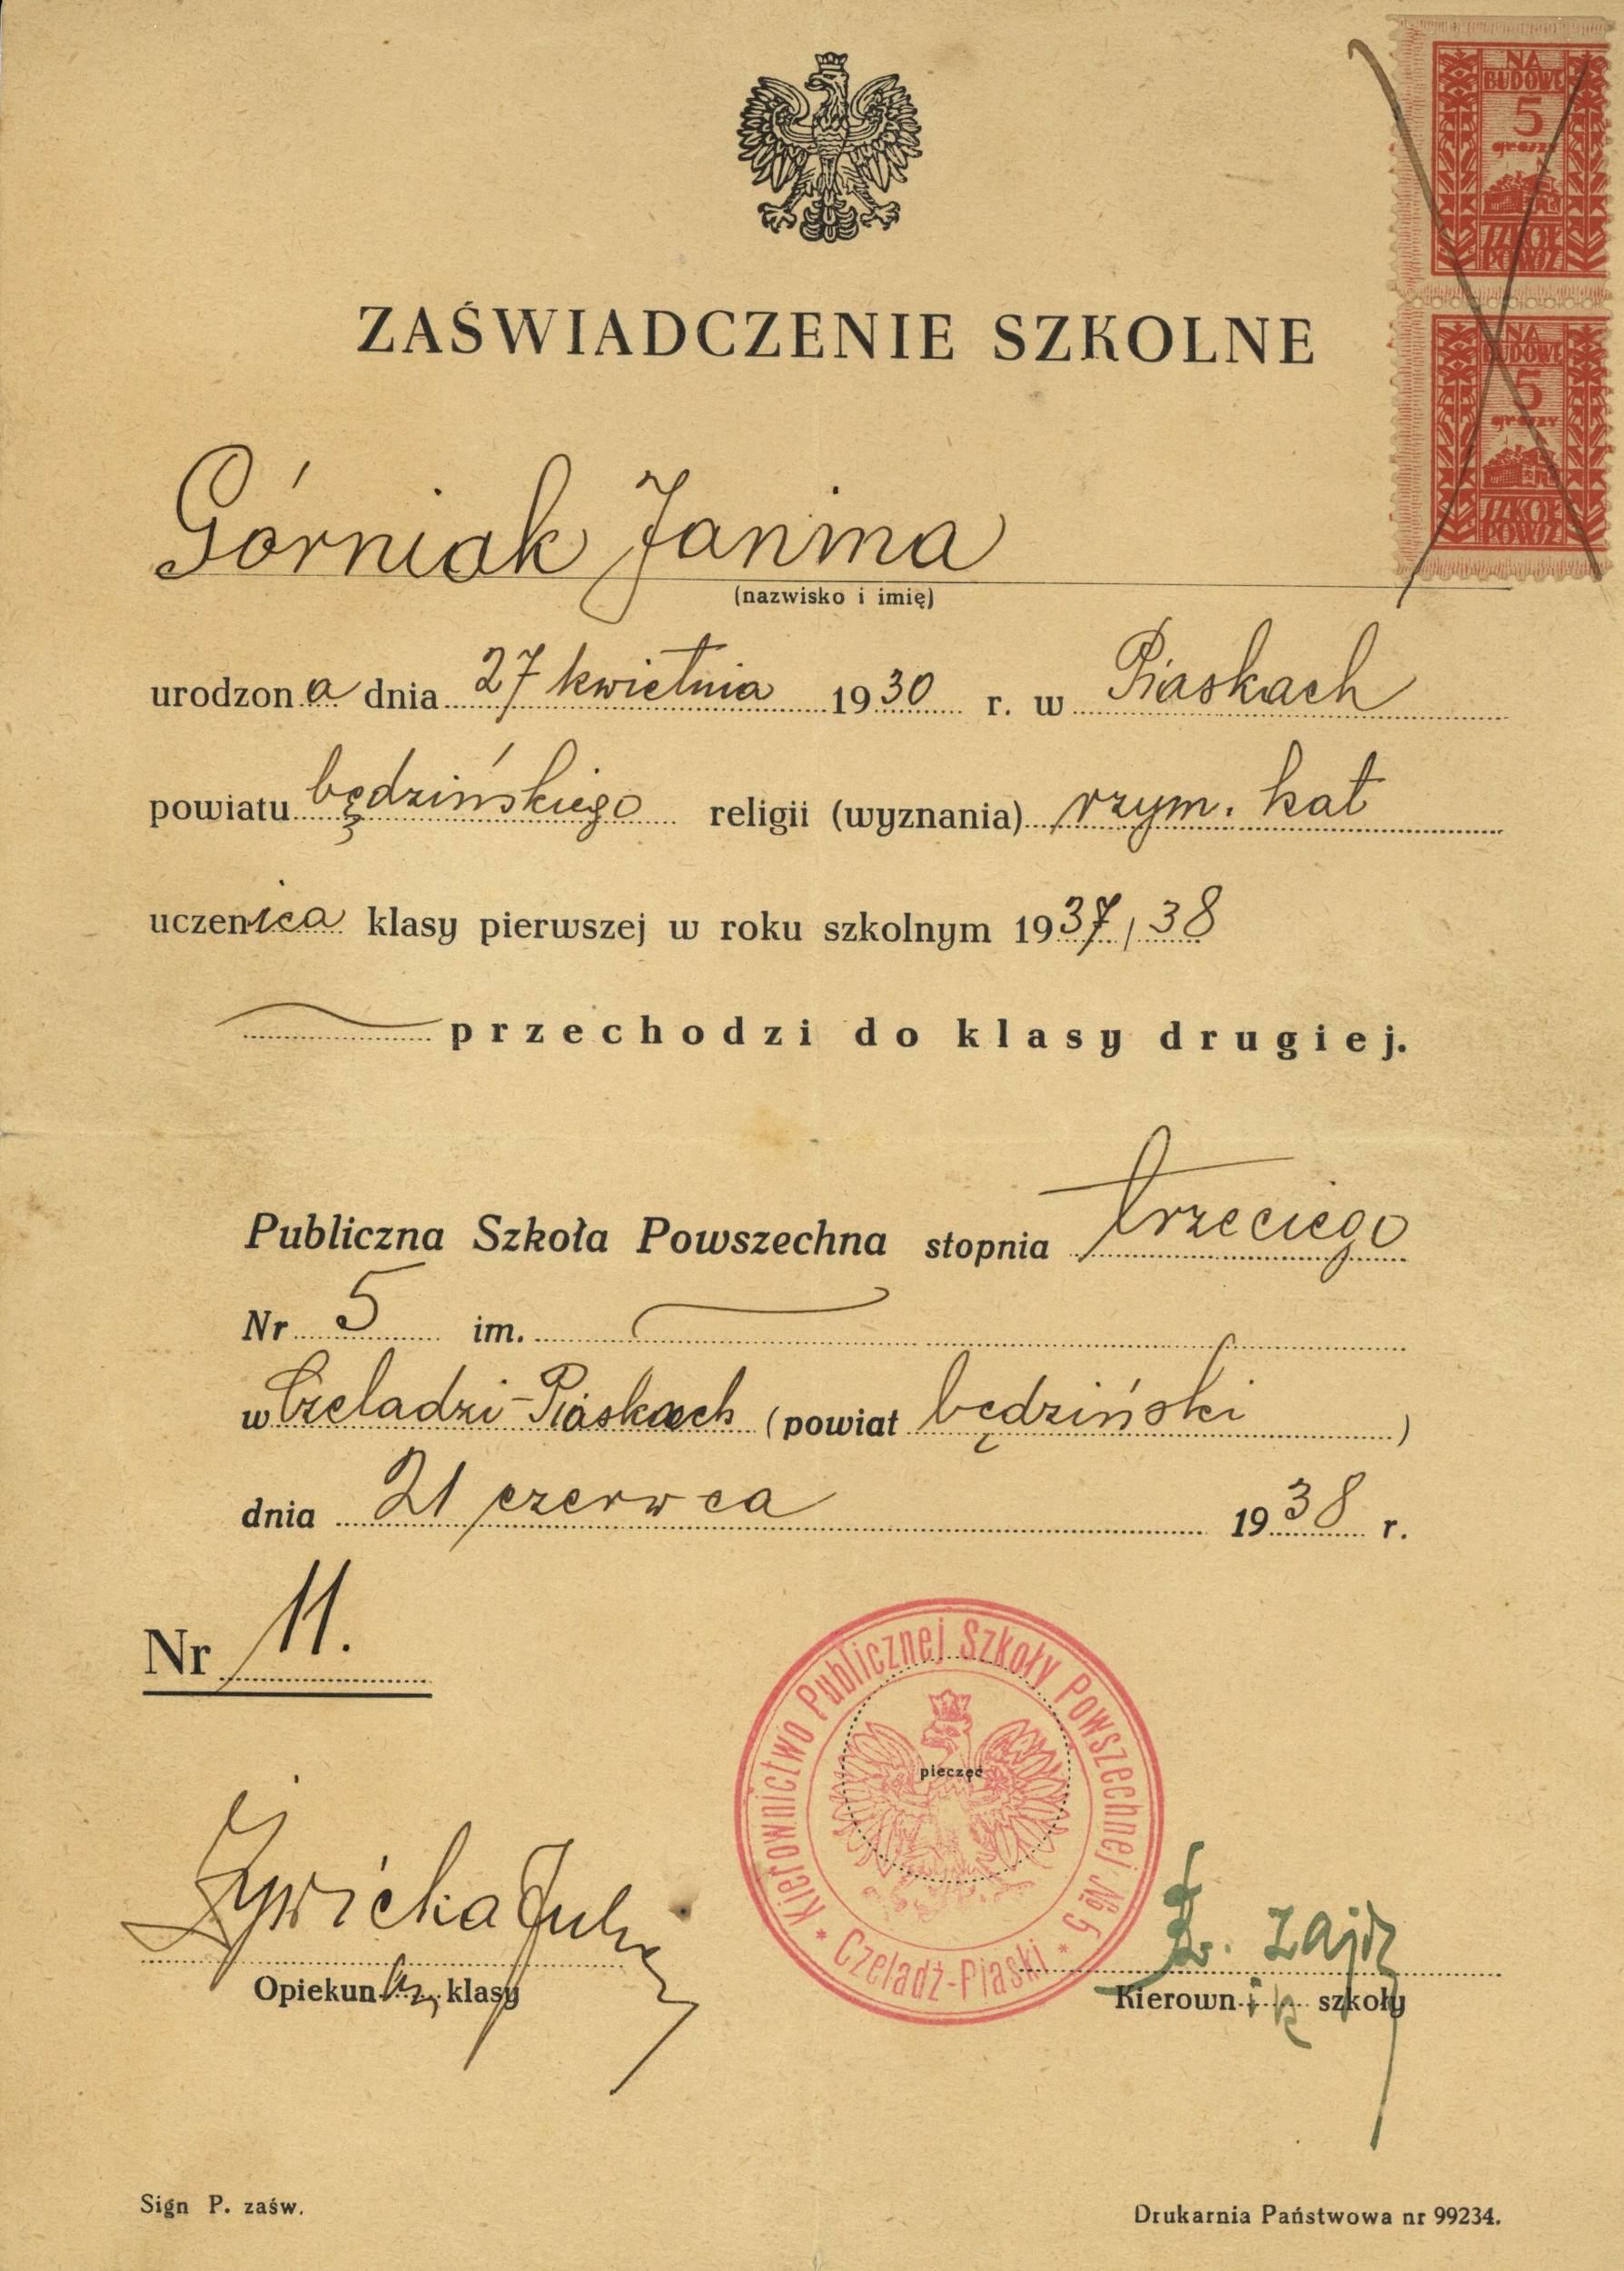 NA
BUDOWĘ
5
groszy
SZKÓŁ
POWSZ
NA
BUDOWĘ
5
groszy
SZKÓŁ
POWSZ
ZAŚWIADCZENIE SZKOLNE
Górniak Janina
(nazwisko i imię)
urodzona dnia 27 kwietnia 1930 r. w Piaskach
powiatu będzińskiego religii (wyznania) rzym. kat
uczenica klasy pierwszej w roku szkolnym 1937/38
przechodzi do klasy drugiej.
Publiczna Szkoła Powszechna stopnia trzeciego
Nr 5 im.
w Czeladzi-Piaskach (powiat będziński)
dnia 21 czerwca 1938 r.
Nr 11.
Kierownictwo Publicznej Szkoły Powszechnej № 5
* Czeladź-Piaski *
pieczęć
Żywicka
Zajdz
Opiekunka klasy
Kierownik szkoły
Sign P. zaśw.
Drukarnia Państwowa nr 99234.